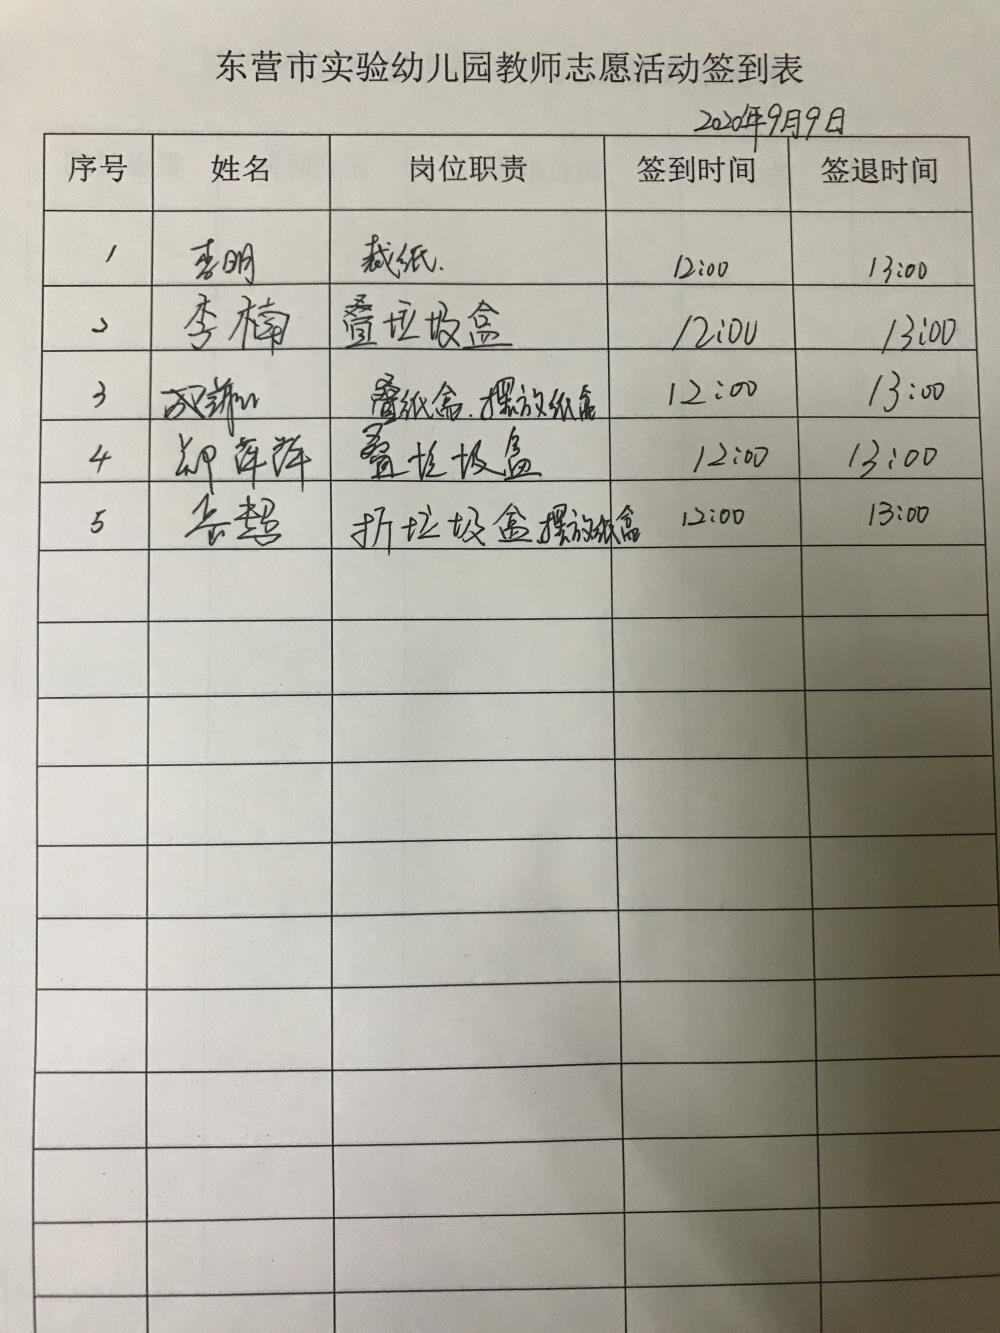 东营市实验幼儿园教师志愿活动签到表
2020年9月9日
序号 姓名 岗位职责 签到时间 签退时间
1 李明 裁纸. 12:00 13:00
2 李楠 叠垃圾盒 12:00 13:00
3 叠纸盒.摆放纸盒 12:00 13:00
4 郑萍萍 叠垃圾盒 12:00 13:00
5 岳超 折垃圾盒 摆放纸盒 12:00 13:00